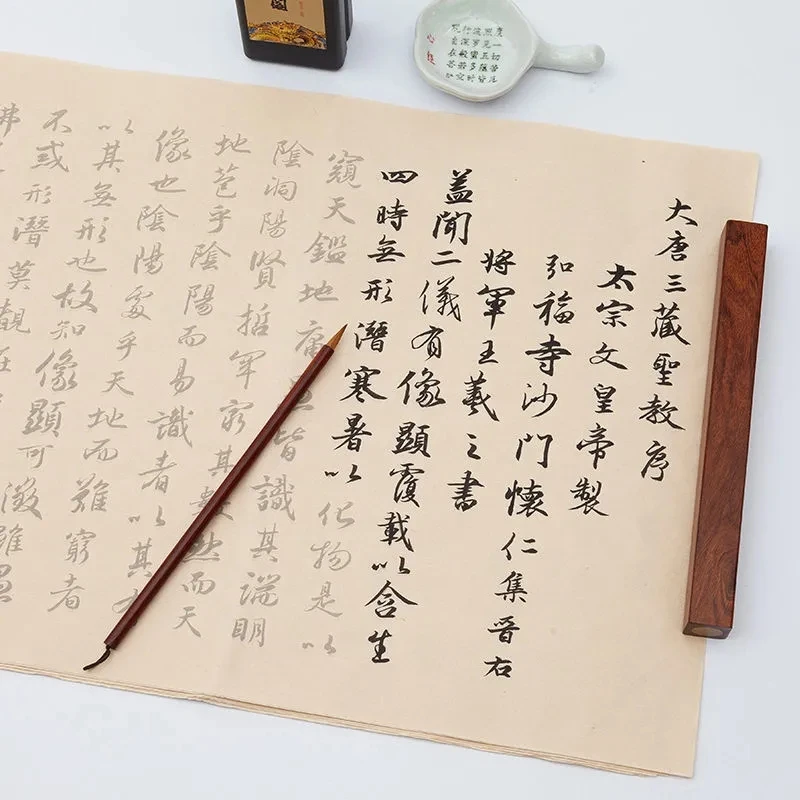 大唐三藏聖教序
太宗文皇帝製
弘福寺沙門懷仁集晉右
將軍王羲之書
蓋聞二儀有像顯覆載以含生
四時無形潛寒暑以化物是以
窺天鑑地庸愚皆識其端明
陰洞陽賢哲罕窮其數然而天
地苞乎陰陽而易識者以其有
像也陰陽處乎天地而難窮者
以其無形也故知像顯可徵雖愚
不惑形潛莫覩在
佛
度一切苦厄
照見五蘊皆
波羅蜜多時
心經